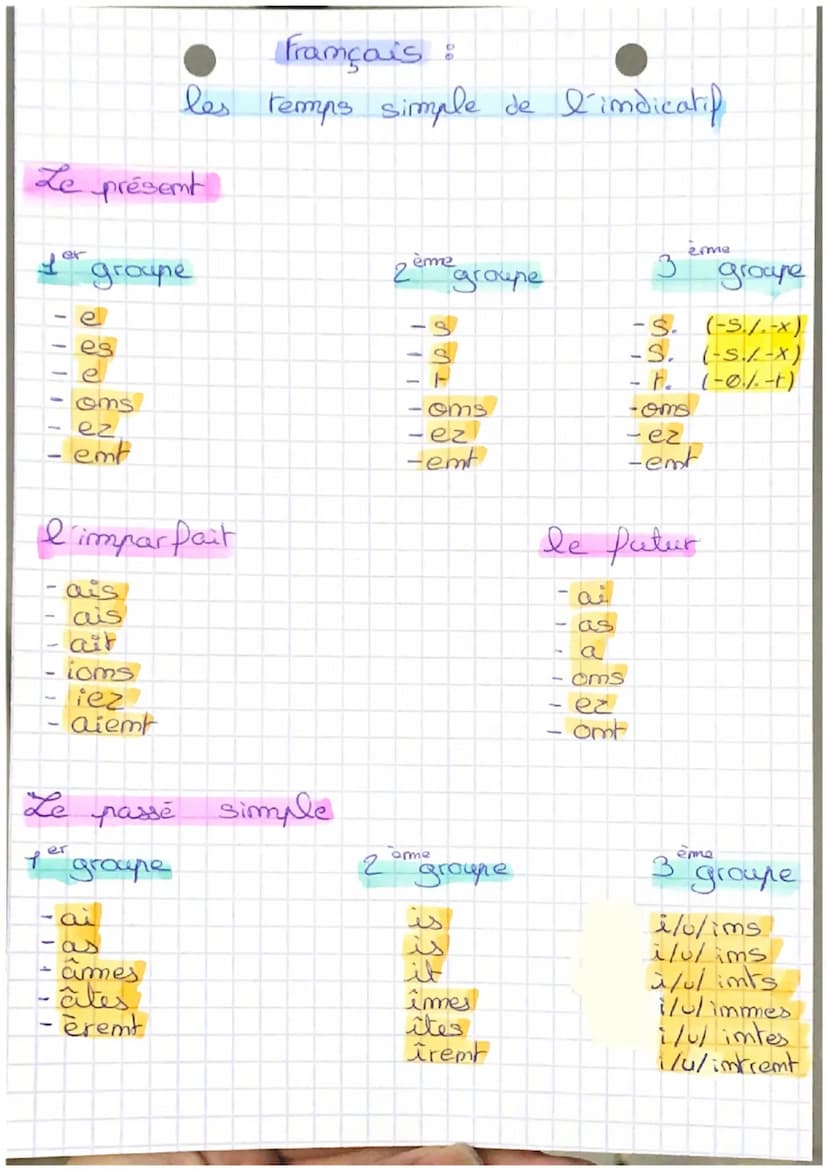 Français :
les temps simple de l'indicatif
Le présent
1er groupe
- e
- es
- e
- ons
- ez
- ent
2ème groupe
- s
- s
- t
- ons
- ez
- ent
3ème groupe
- s. (-s./.-x)
- s. (-s./.-x)
- t. (-0./.-t)
- ons
- ez
- ent
l'imparfait
- ais
- ais
- ait
- ions
- iez
- aient
le futur
- ai
- as
- a
- ons
- ez
- ont
Le passé simple
1er groupe
- ai
- as
- âmes
- âtes
- èrent
2ème groupe
is
is
it
îmes
îtes
îrent
3ème groupe
i/u/ins
i/u/ins
i/u/ints
i/u/inmes
i/u/intes
i/u/intrent